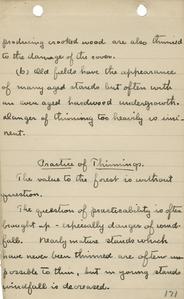 producing crooked wood are also thinned
to the damage of the cover.
(b) Old fields have the appearance
of many aged stands but often with
an even aged hardwood undergrowth.
Danger of thinning too heavily is immi-
nent.
Practice of Thinnings.
The value to the forest is without
question.
The question of practicability is often
brought up - especially danger of wind-
fall. Nearly mature stands which
have never been thinned are often im-
possible to thin, but in young stands
windfall is decreased.
171